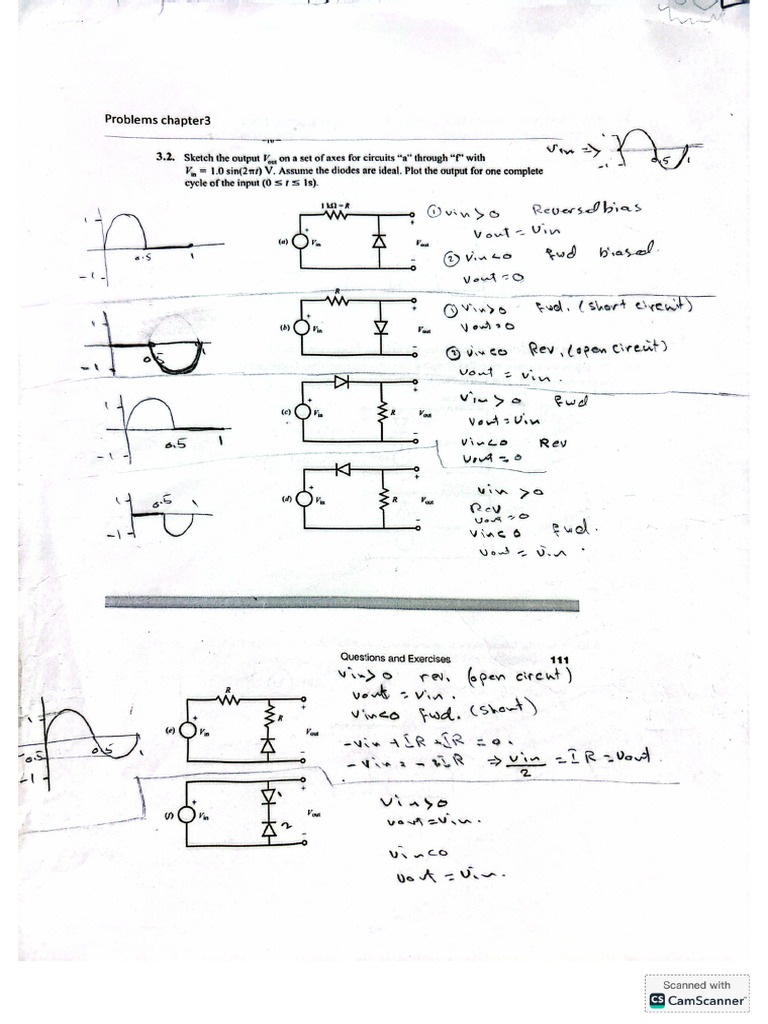 Problems chapter3
3.2. Sketch the output Vout on a set of axes for circuits "a" through "f" with
Vin = 1.0 sin(2πt) V. Assume the diodes are ideal. Plot the output for one complete
cycle of the input (0 ≤ t ≤ 1s).
Vin ⇒ 1 -1 0.5 1
1 -1 0.5 1
1 kΩ – R
(a) + Vin + Vout –
① Vin>0 Reversed bias
Vout = Vin
② Vin<0 fwd biased.
Vout=0
1 -1 0.5 1
R
(b) + Vin + Vout –
① Vin>0 fwd. (short circuit)
Vout=0
② Vin<0 Rev, (open circuit)
Vout = Vin.
1 -1 0.5 1
(c) + Vin R + Vout –
Vin > 0 fwd
Vout = Vin
Vin<0 Rev
Vout = 0
1 -1 0.5 1
(d) + Vin R + Vout –
Vin >0
Rev
Vout=0
Vin< 0 fwd.
Vout = Vin.
Questions and Exercises 111
Vin>0 rev. (open circut)
Vout = Vin.
Vin<0 fwd. (short)
1 -0.5 -1 0.5 1
R
(e) + Vin R + Vout –
-Vin + IR + IR = 0.
-Vin = -2IR ⇒ Vin/2 = IR = Vout
(f) + Vin 1 2 + Vout –
Vin>0
Vout=Vin.
Vin<0
Vout = Vin.
Scanned with
CS CamScanner